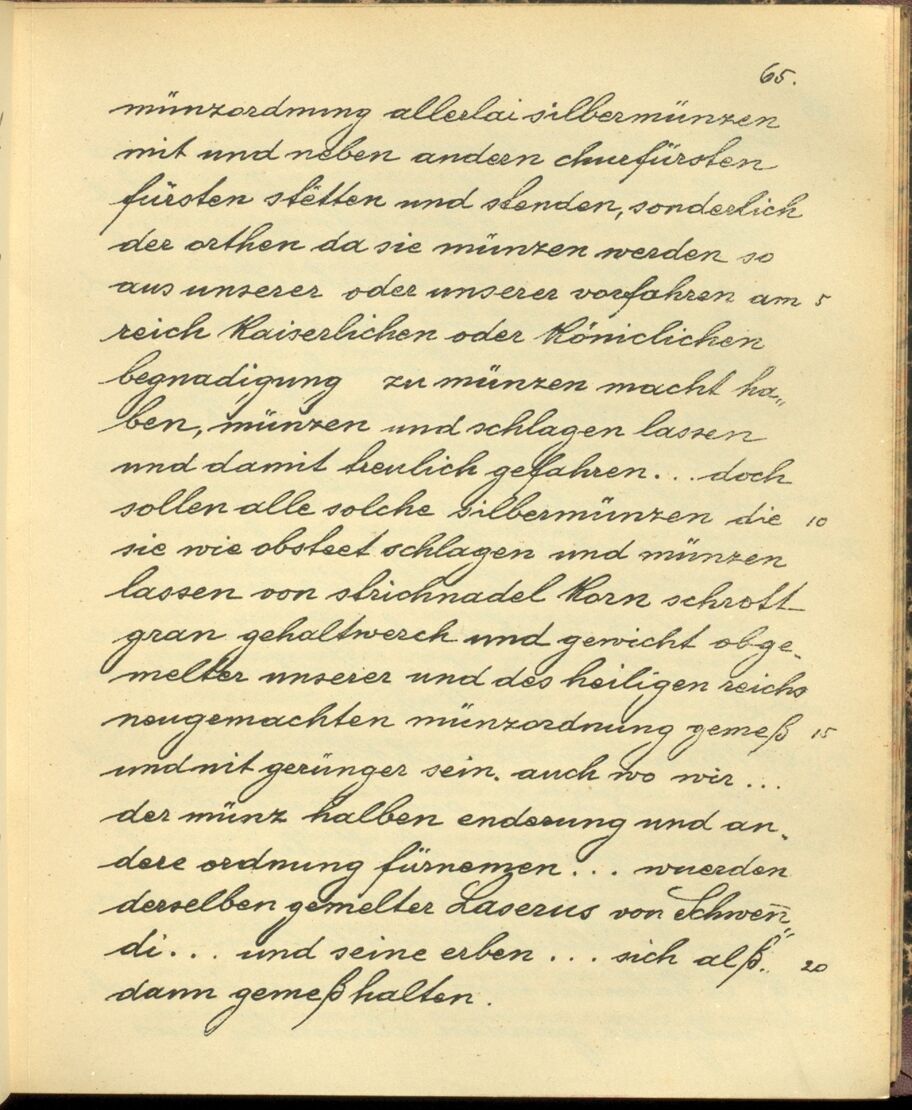 65.
münzordnung allerlai silbermünzen
mit und neben andern churfürsten
fürsten stëtten und stenden, sonderlich
der orthen da sie münzen werden so
aus unserer oder unserer vorfahren am 5
reich kaiserlichen oder königlichen
begnadigung zu münzen macht ha„
ben, münzen und schlagen lassen
und damit treulich gefahren... doch
sollen alle solche silbermünzen die 10
sie wie obsteet schlagen und münzen
lassen von strichnadel korn schrott
gran gehaltwerch und gewicht obge„
melter unserer und des heiligen reichs
neugemachten münzordnung gemeß 15
und nit gerünger sein. auch wo wir...
der münz halben enderung und an„
dere ordnung fürnemen... wuerden
derselben gemelter Laserus von Schwen„
di... und seine erben... sich alß„ 20
dann gemeß halten.